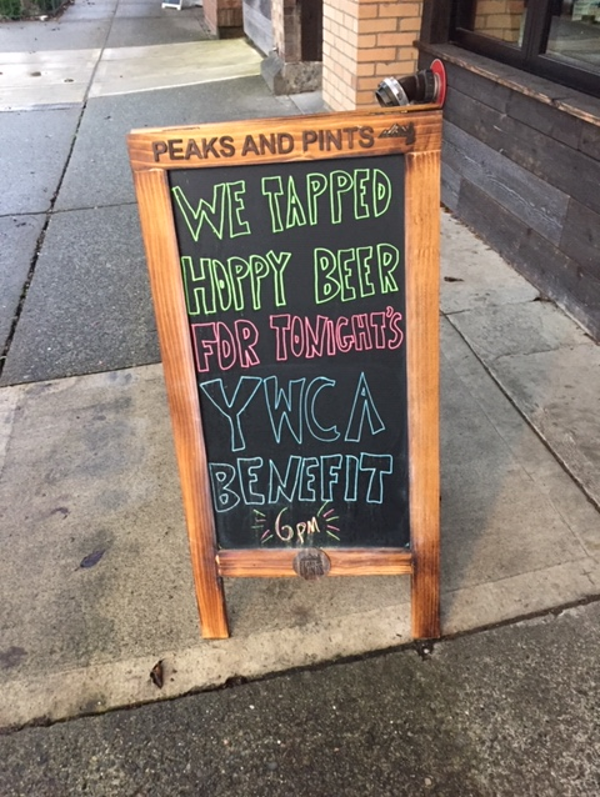 PEAKS AND PINTS
WE TAPPED
HOPPY BEER
FOR TONIGHT'S
YWCA
BENEFIT
6PM